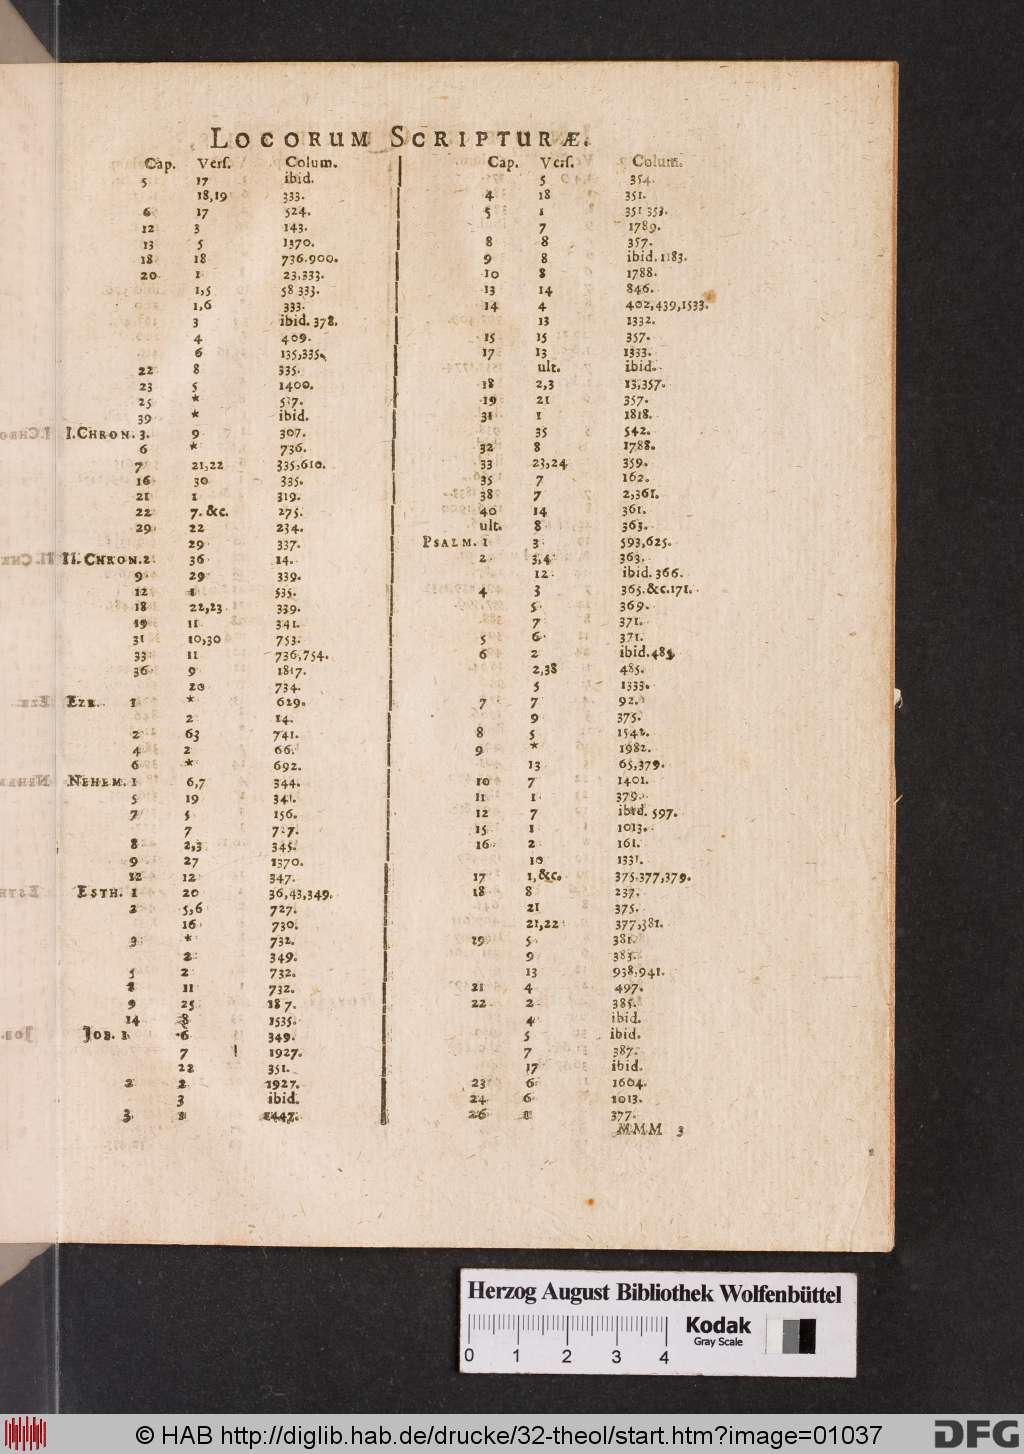 LOCORUM SCRIPTURÆ.
Cap. Vers. Colum.
5 17 ibid.
18,19 333.
6 17 524.
12 3 143.
13 5 1370.
18 18 736.900.
20 1 23,333.
1,5 58 333.
1,6 333.
3 ibid. 378.
4 409.
6 135,335.
22 8 335.
23 5 1400.
25 * 537.
39 * ibid.
I.CHRON. 3. 9 307.
6 * 736.
7 21,22 335,610.
16 30 335.
21 1 319.
22 7. &c. 275.
29 22 234.
29 337.
II.CHRON.2 36 14.
9 29 339.
12 1 535.
18 22,23 339.
19 11 341.
31 10,30 753.
33 11 736,754.
36 9 1817.
20 734.
EZR. 1 * 629.
2 14.
2 63 741.
4 2 66.
6 * 692.
NEHEM. 1 6,7 344.
5 19 341.
7 5 156.
7 727.
8 2,3 345.
9 27 1370.
12 12 347.
ESTH. 1 20 36,43,349.
2 5,6 727.
16 730.
3 * 732.
2 349.
5 2 732.
8 11 732.
9 25 187.
14 8 1535.
JOB. 1 6 349.
7 1927.
22 351.
2 2 1927.
3 ibid.
3 1 1447.
Cap. Vers. Colum.
5 354.
4 18 351.
5 1 351 353.
7 1789.
8 8 357.
9 8 ibid. 1183.
10 8 1788.
13 14 846.
14 4 402,439,1533.
13 1332.
15 15 357.
17 13 1333.
ult. ibid.
18 2,3 13,357.
19 21 357.
31 1 1818.
35 542.
32 8 1788.
33 23,24 359.
35 7 162.
38 7 2,361.
40 14 361.
ult. 8 363.
PSALM. 1 3 593,625.
2 3,4 363.
12 ibid. 366.
4 3 365.&c.171.
5 369.
7 371.
5 6 371.
6 2 ibid.485.
2,38 485.
5 1333.
7 7 92.
9 375.
8 5 1542.
9 * 1982.
13 65,379.
10 7 1401.
11 1 379.
12 7 ibid. 597.
15 1 1013.
16 2 161.
10 1331.
17 1,&c. 375.377,379.
18 8 237.
21 375.
21,22 377,381.
19 5 381.
9 383.
13 938,941.
21 4 497.
22 2 385.
4 ibid.
5 ibid.
7 387.
17 ibid.
23 6 1604.
24 6 1013.
26 1 377.
MMM 3
Herzog August Bibliothek Wolfenbüttel
0 1 2 3 4
Kodak
Gray Scale
© HAB http://diglib.hab.de/drucke/32-theol/start.htm?image=01037
DFG